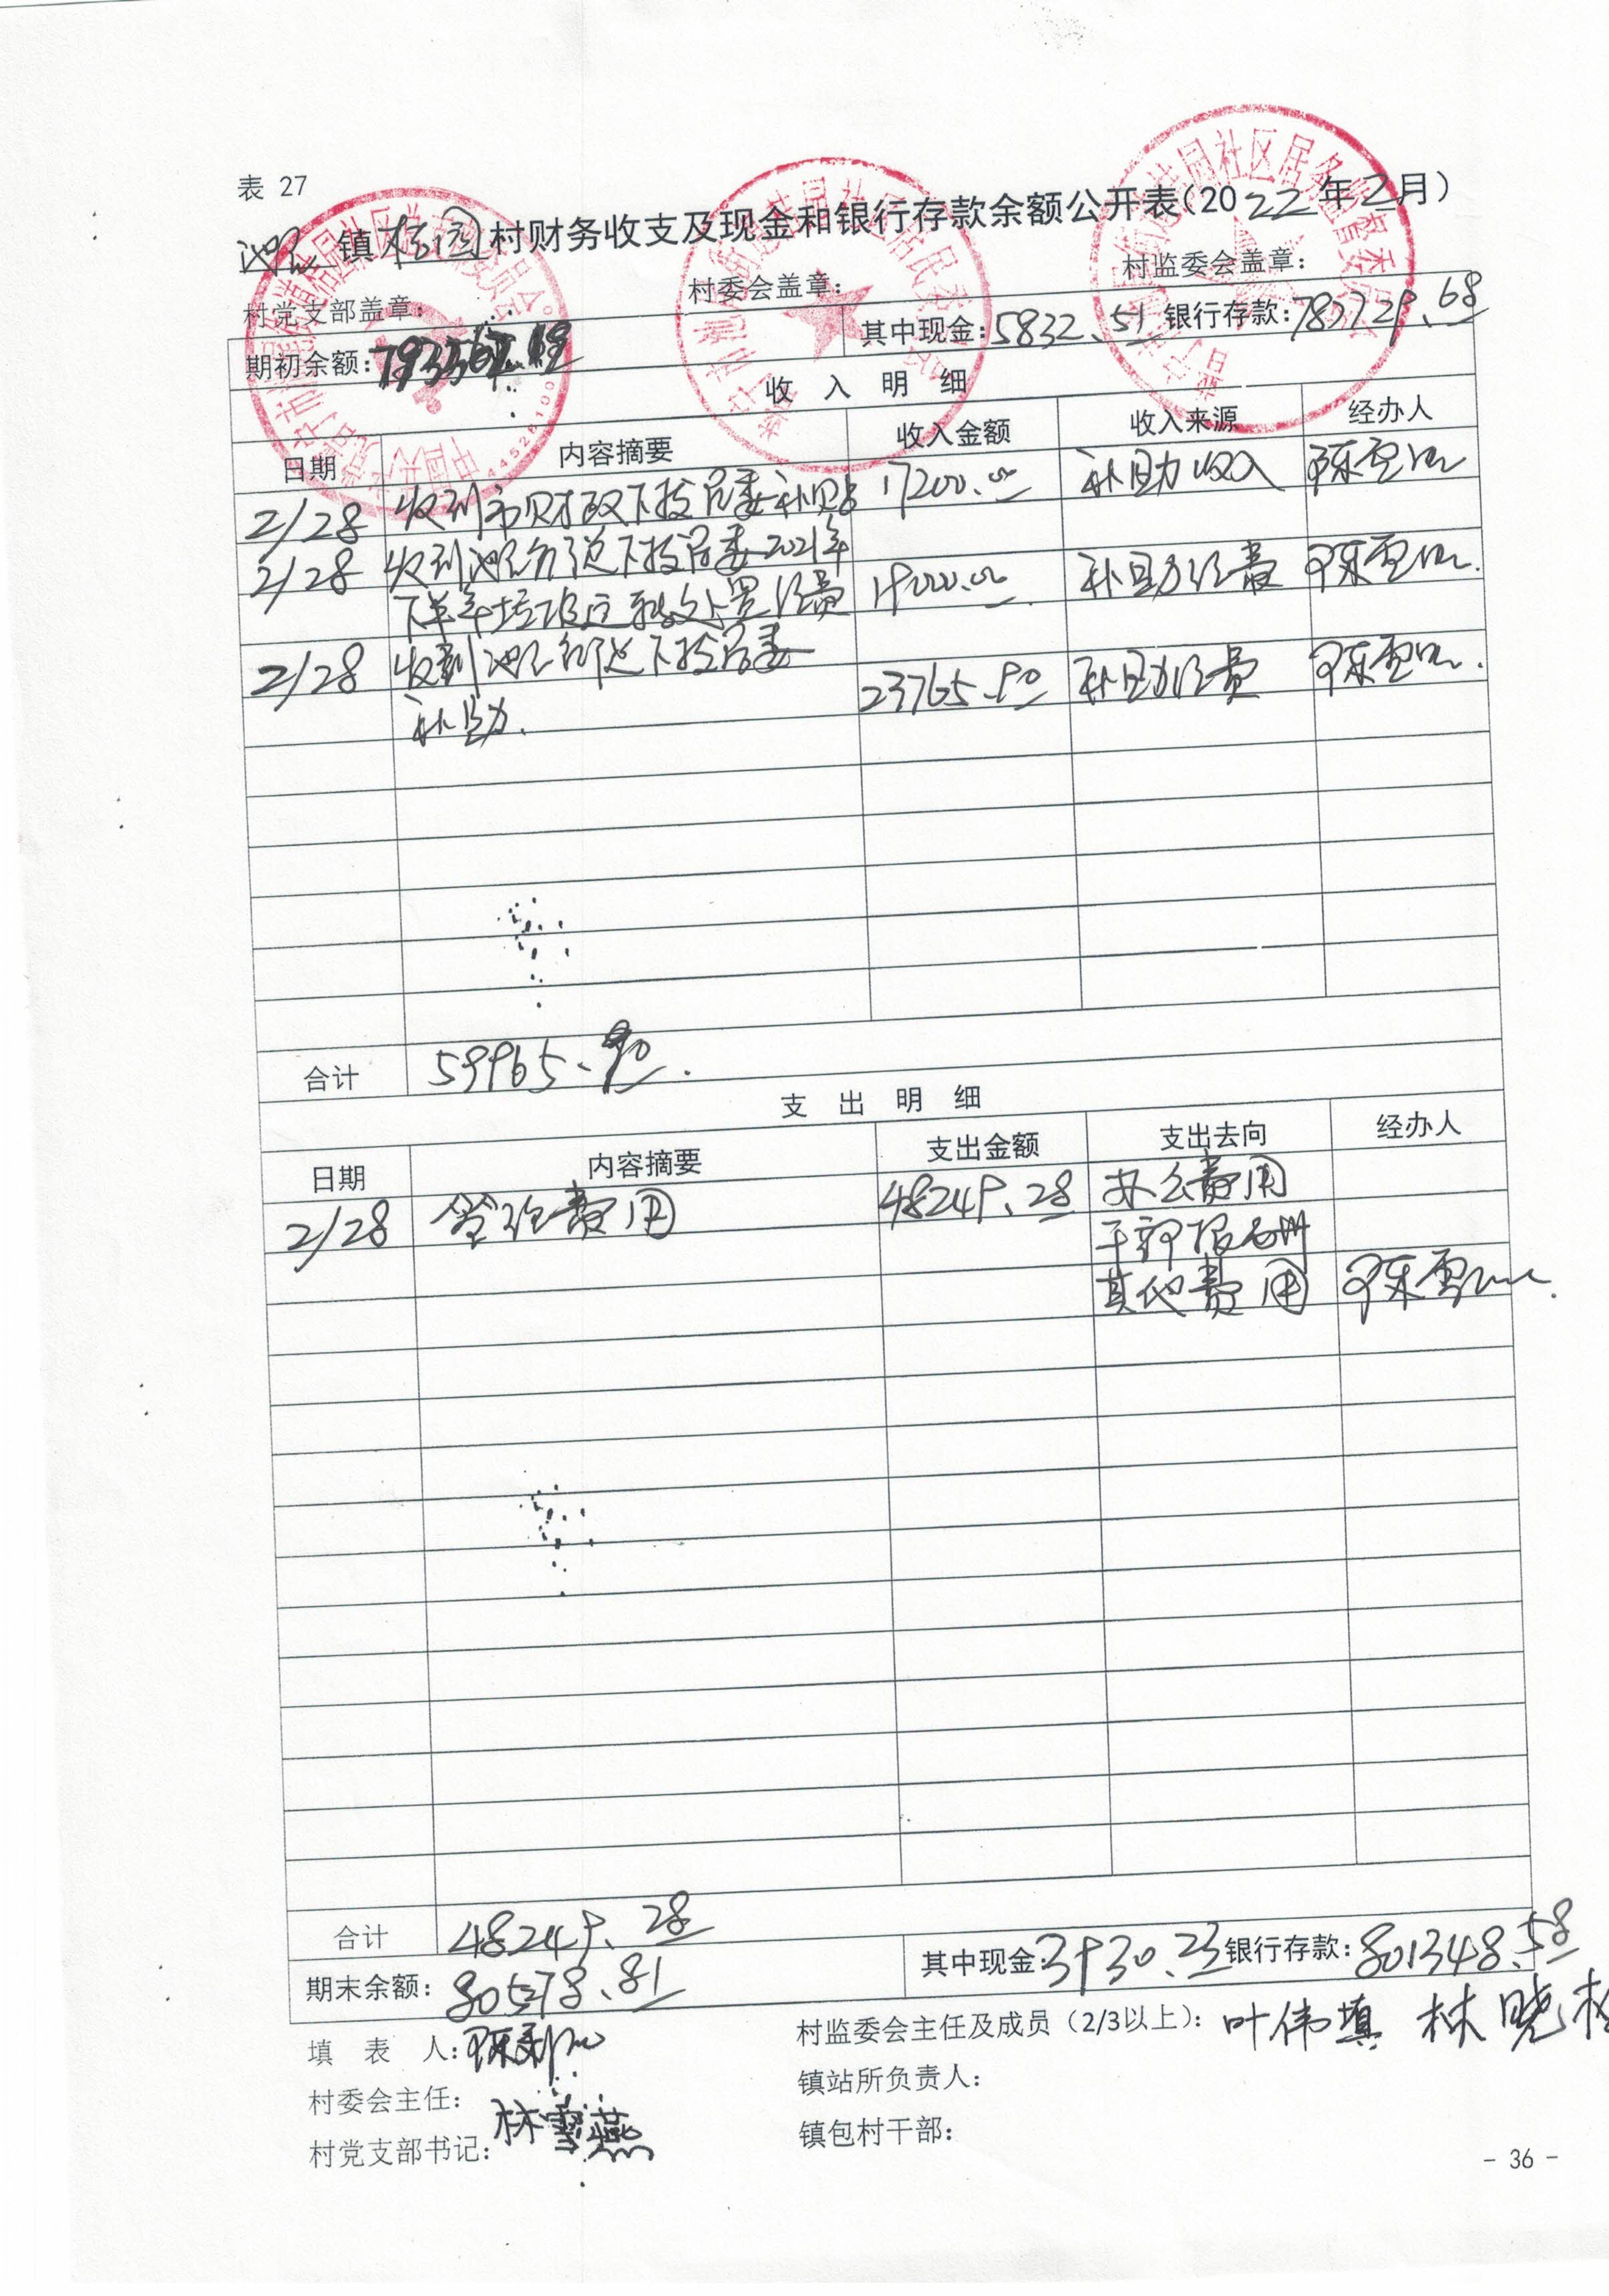 表 27
镇桔园村财务收支及现金和银行存款余额公开表(2022年2月)
村党支部盖章： 村委会盖章： 村监委会盖章：
期初余额： 其中现金:5832.51 银行存款:787729.68
收 入 明 细
日期 内容摘要 收入金额 收入来源 经办人
2/28 收到市财政下拨居委补贴 17200.00 补助收入
2/28 收到池尾街道下拨居委2021年
下半年垃圾运转处置经费 19000.00 补助经费
2/28 收到池尾街道下拨居委 23765.90 补助经费
补助.
合计 59965.90.
支 出 明 细
日期 内容摘要 支出金额 支出去向 经办人
2/28 管理费用 48249.28 办公费用
干部报酬
其他费用
合计 48249.28
期末余额: 80578.81 其中现金:3930.23 银行存款:801348.58
填 表 人:
村委会主任:
村党支部书记: 林雪燕
村监委会主任及成员（2/3以上）: 叶伟填 林晓
镇站所负责人:
镇包村干部:
- 36 -